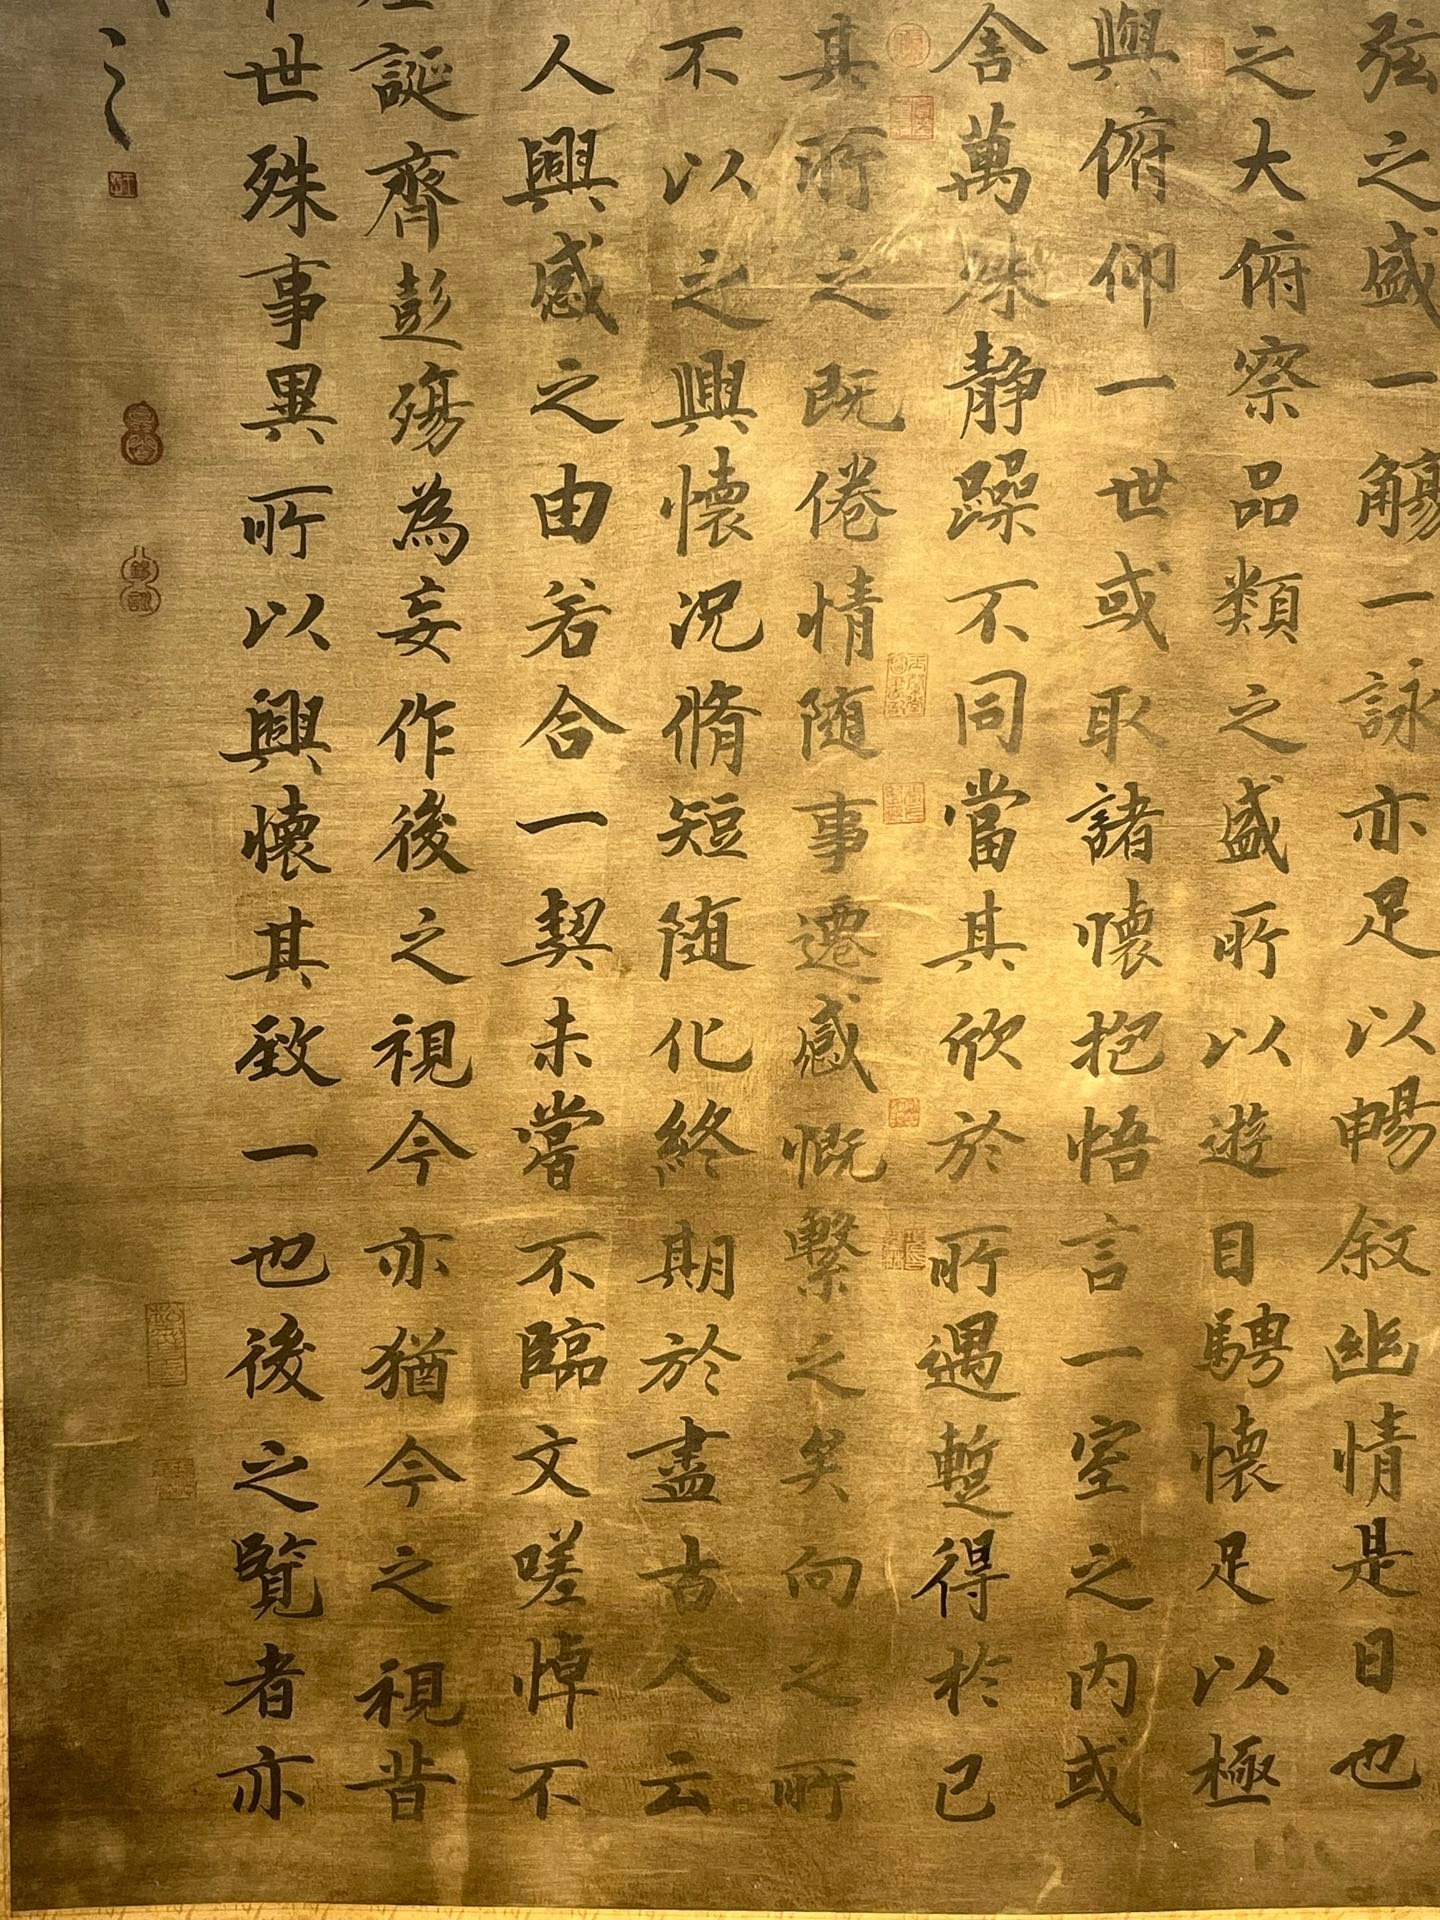 弦之盛一觴一詠亦足以暢叙幽情是日也
之大俯察品類之盛所以遊目騁懷足以極
與俯仰一世或取諸懷抱悟言一室之內或
舍萬殊静躁不同當其欣於所遇蹔得於己
其所之既倦情随事遷感慨繫之矣向之所
不以之興懷况脩短随化終期於盡古人云
人興感之由若合一契未嘗不臨文嗟悼不
誕齊彭殤為妄作後之視今亦猶今之視昔
世殊事異所以興懷其致一也後之覽者亦